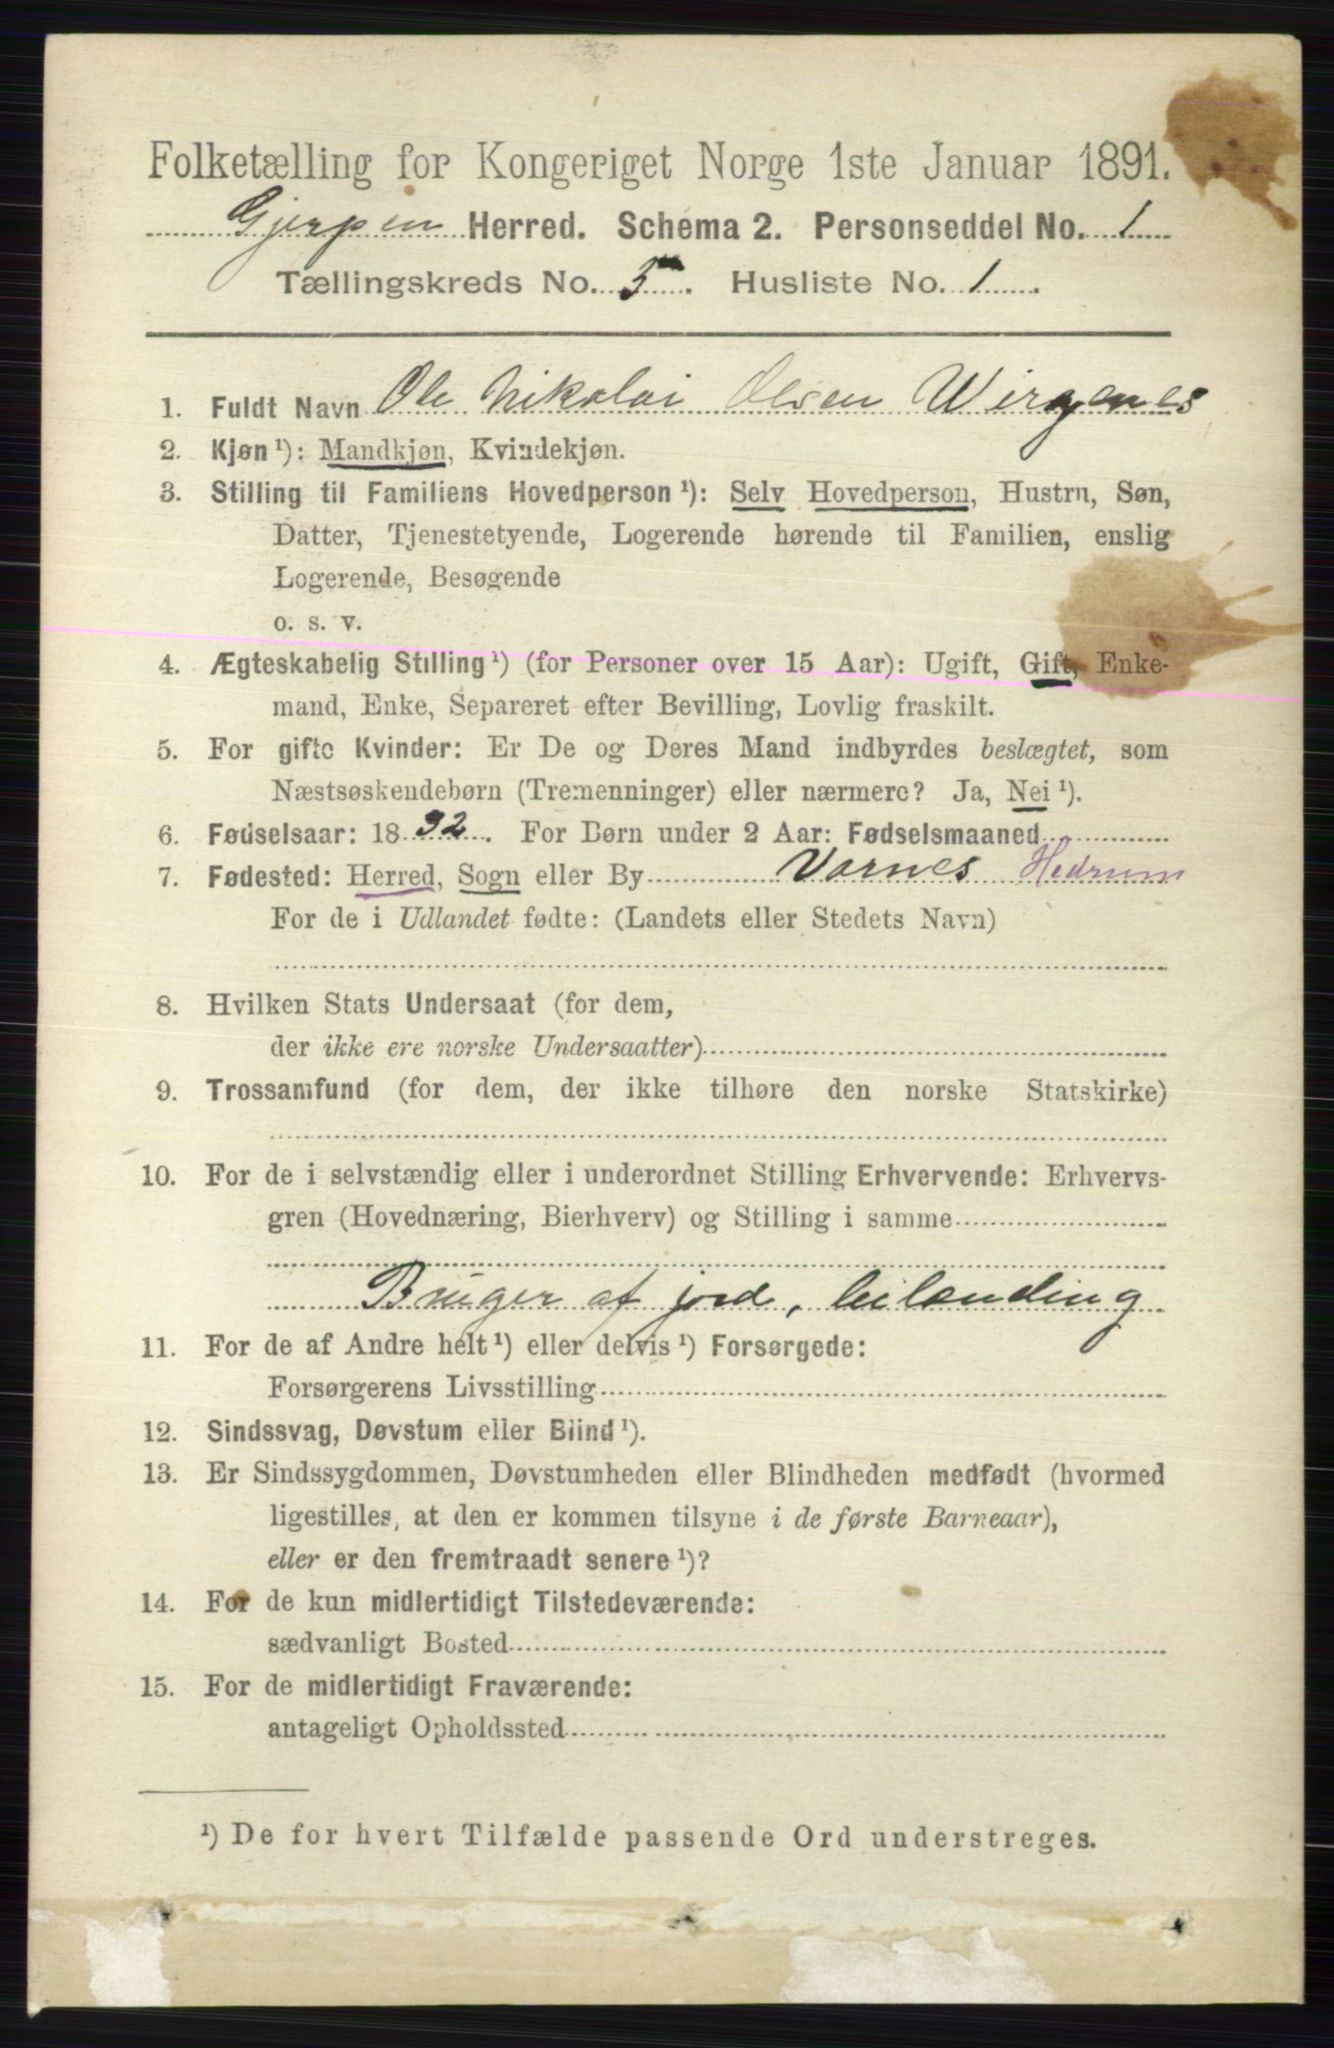 Folketælling for Kongeriget Norge 1ste Januar 1891.
Gjerpen Herred. Schema 2. Personseddel No. 1
Tællingskreds No. 5. Husliste No. 1.
1. Fuldt Navn Ole Nikolai Olsen Wirgenes
2. Kjøn ¹): Mandkjøn, Kvindekjøn.
3. Stilling til Familiens Hovedperson ¹): Selv Hovedperson, Hustru, Søn,
Datter, Tjenestetyende, Logerende hørende til Familien, enslig
Logerende, Besøgende
o. s. v.
4. Ægteskabelig Stilling ¹) (for Personer over 15 Aar): Ugift, Gift, Enke-
mand, Enke, Separeret efter Bevilling, Lovlig fraskilt.
5. For gifte Kvinder: Er De og Deres Mand indbyrdes beslægtet, som
Næstsøskendebørn (Tremenninger) eller nærmere? Ja, Nei ¹).
6. Fødselsaar: 1832. For Børn under 2 Aar: Fødselsmaaned
7. Fødested: Herred, Sogn eller By Varnes Hedrum
For de i Udlandet fødte: (Landets eller Stedets Navn)
8. Hvilken Stats Undersaat (for dem,
der ikke ere norske Undersaatter)
9. Trossamfund (for dem, der ikke tilhøre den norske Statskirke)
10. For de i selvstændig eller i underordnet Stilling Erhvervende: Erhvervs-
gren (Hovednæring, Bierhverv) og Stilling i samme
Bruger af jord, leilænding
11. For de af Andre helt ¹) eller delvis ¹) Forsørgede:
Forsørgerens Livsstilling
12. Sindssvag, Døvstum eller Blind ¹).
13. Er Sindssygdommen, Døvstumheden eller Blindheden medfødt (hvormed
ligestilles, at den er kommen tilsyne i de første Barneaar),
eller er den fremtraadt senere ¹)?
14. For de kun midlertidigt Tilstedeværende:
sædvanligt Bosted
15. For de midlertidigt Fraværende:
antageligt Opholdssted
¹) De for hvert Tilfælde passende Ord understreges.